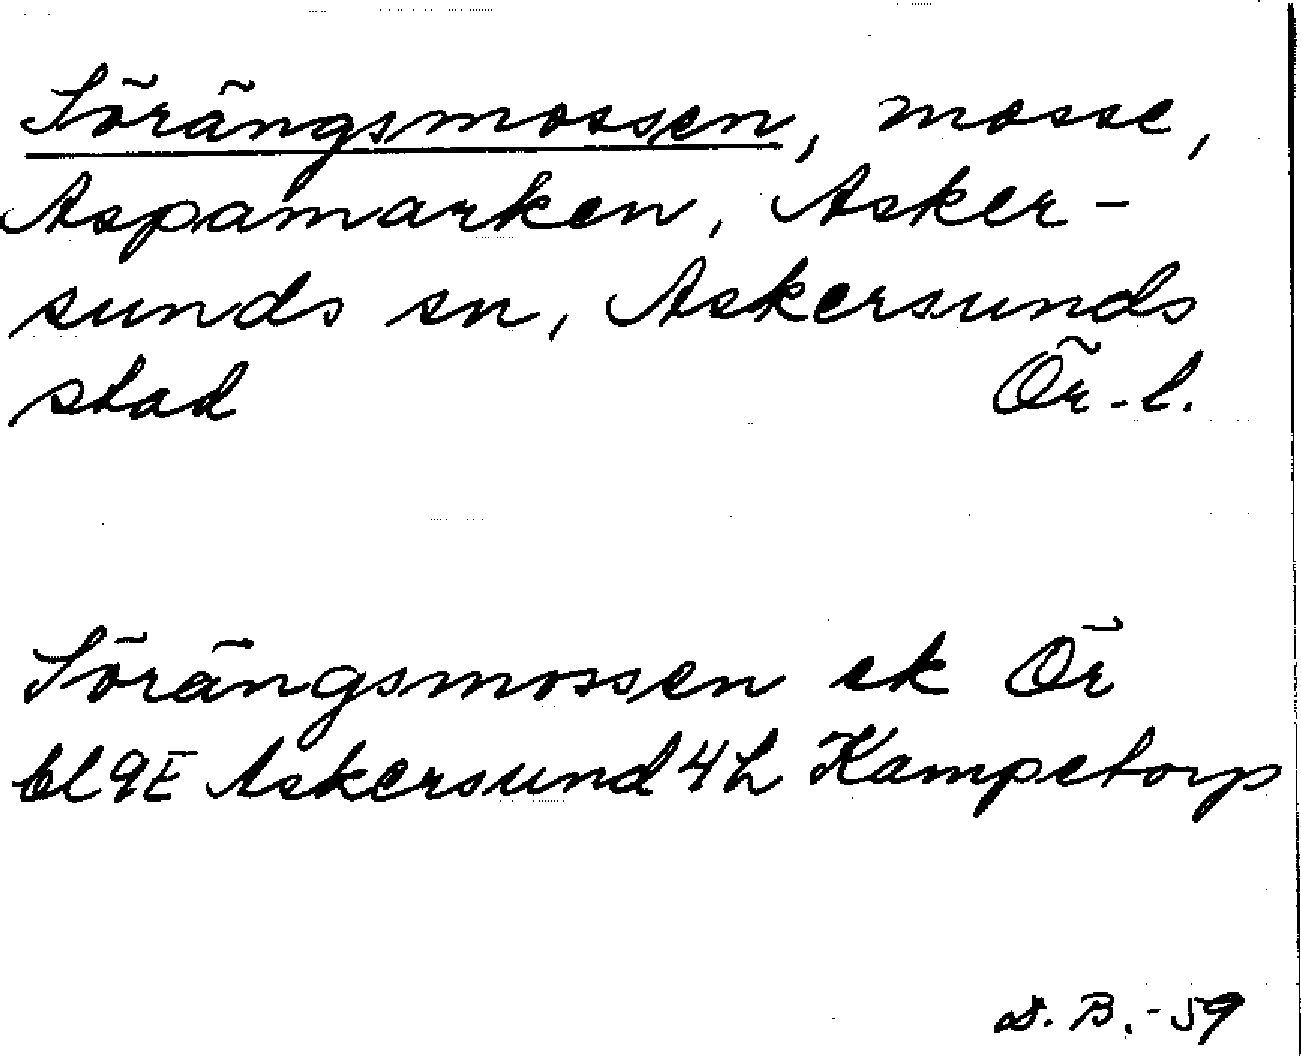 Sörängsmossen, mosse,
Aspamarken, Asker-
sunds sn, Askersunds
stad Ör-l.
Sörängsmossen ek Ör
bl 9E Askersund 4h Kampetorp
S. B. -59